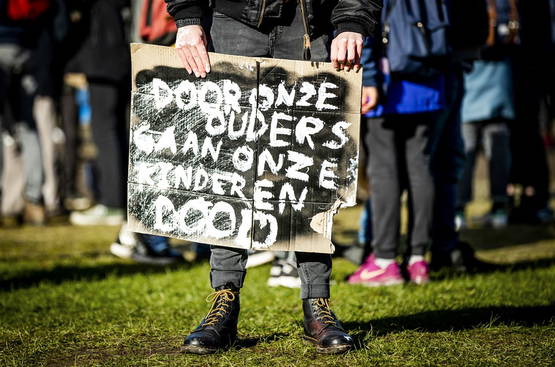 DOOR ONZE
OUDERS
GAAN ONZE
KINDEREN
DOOD